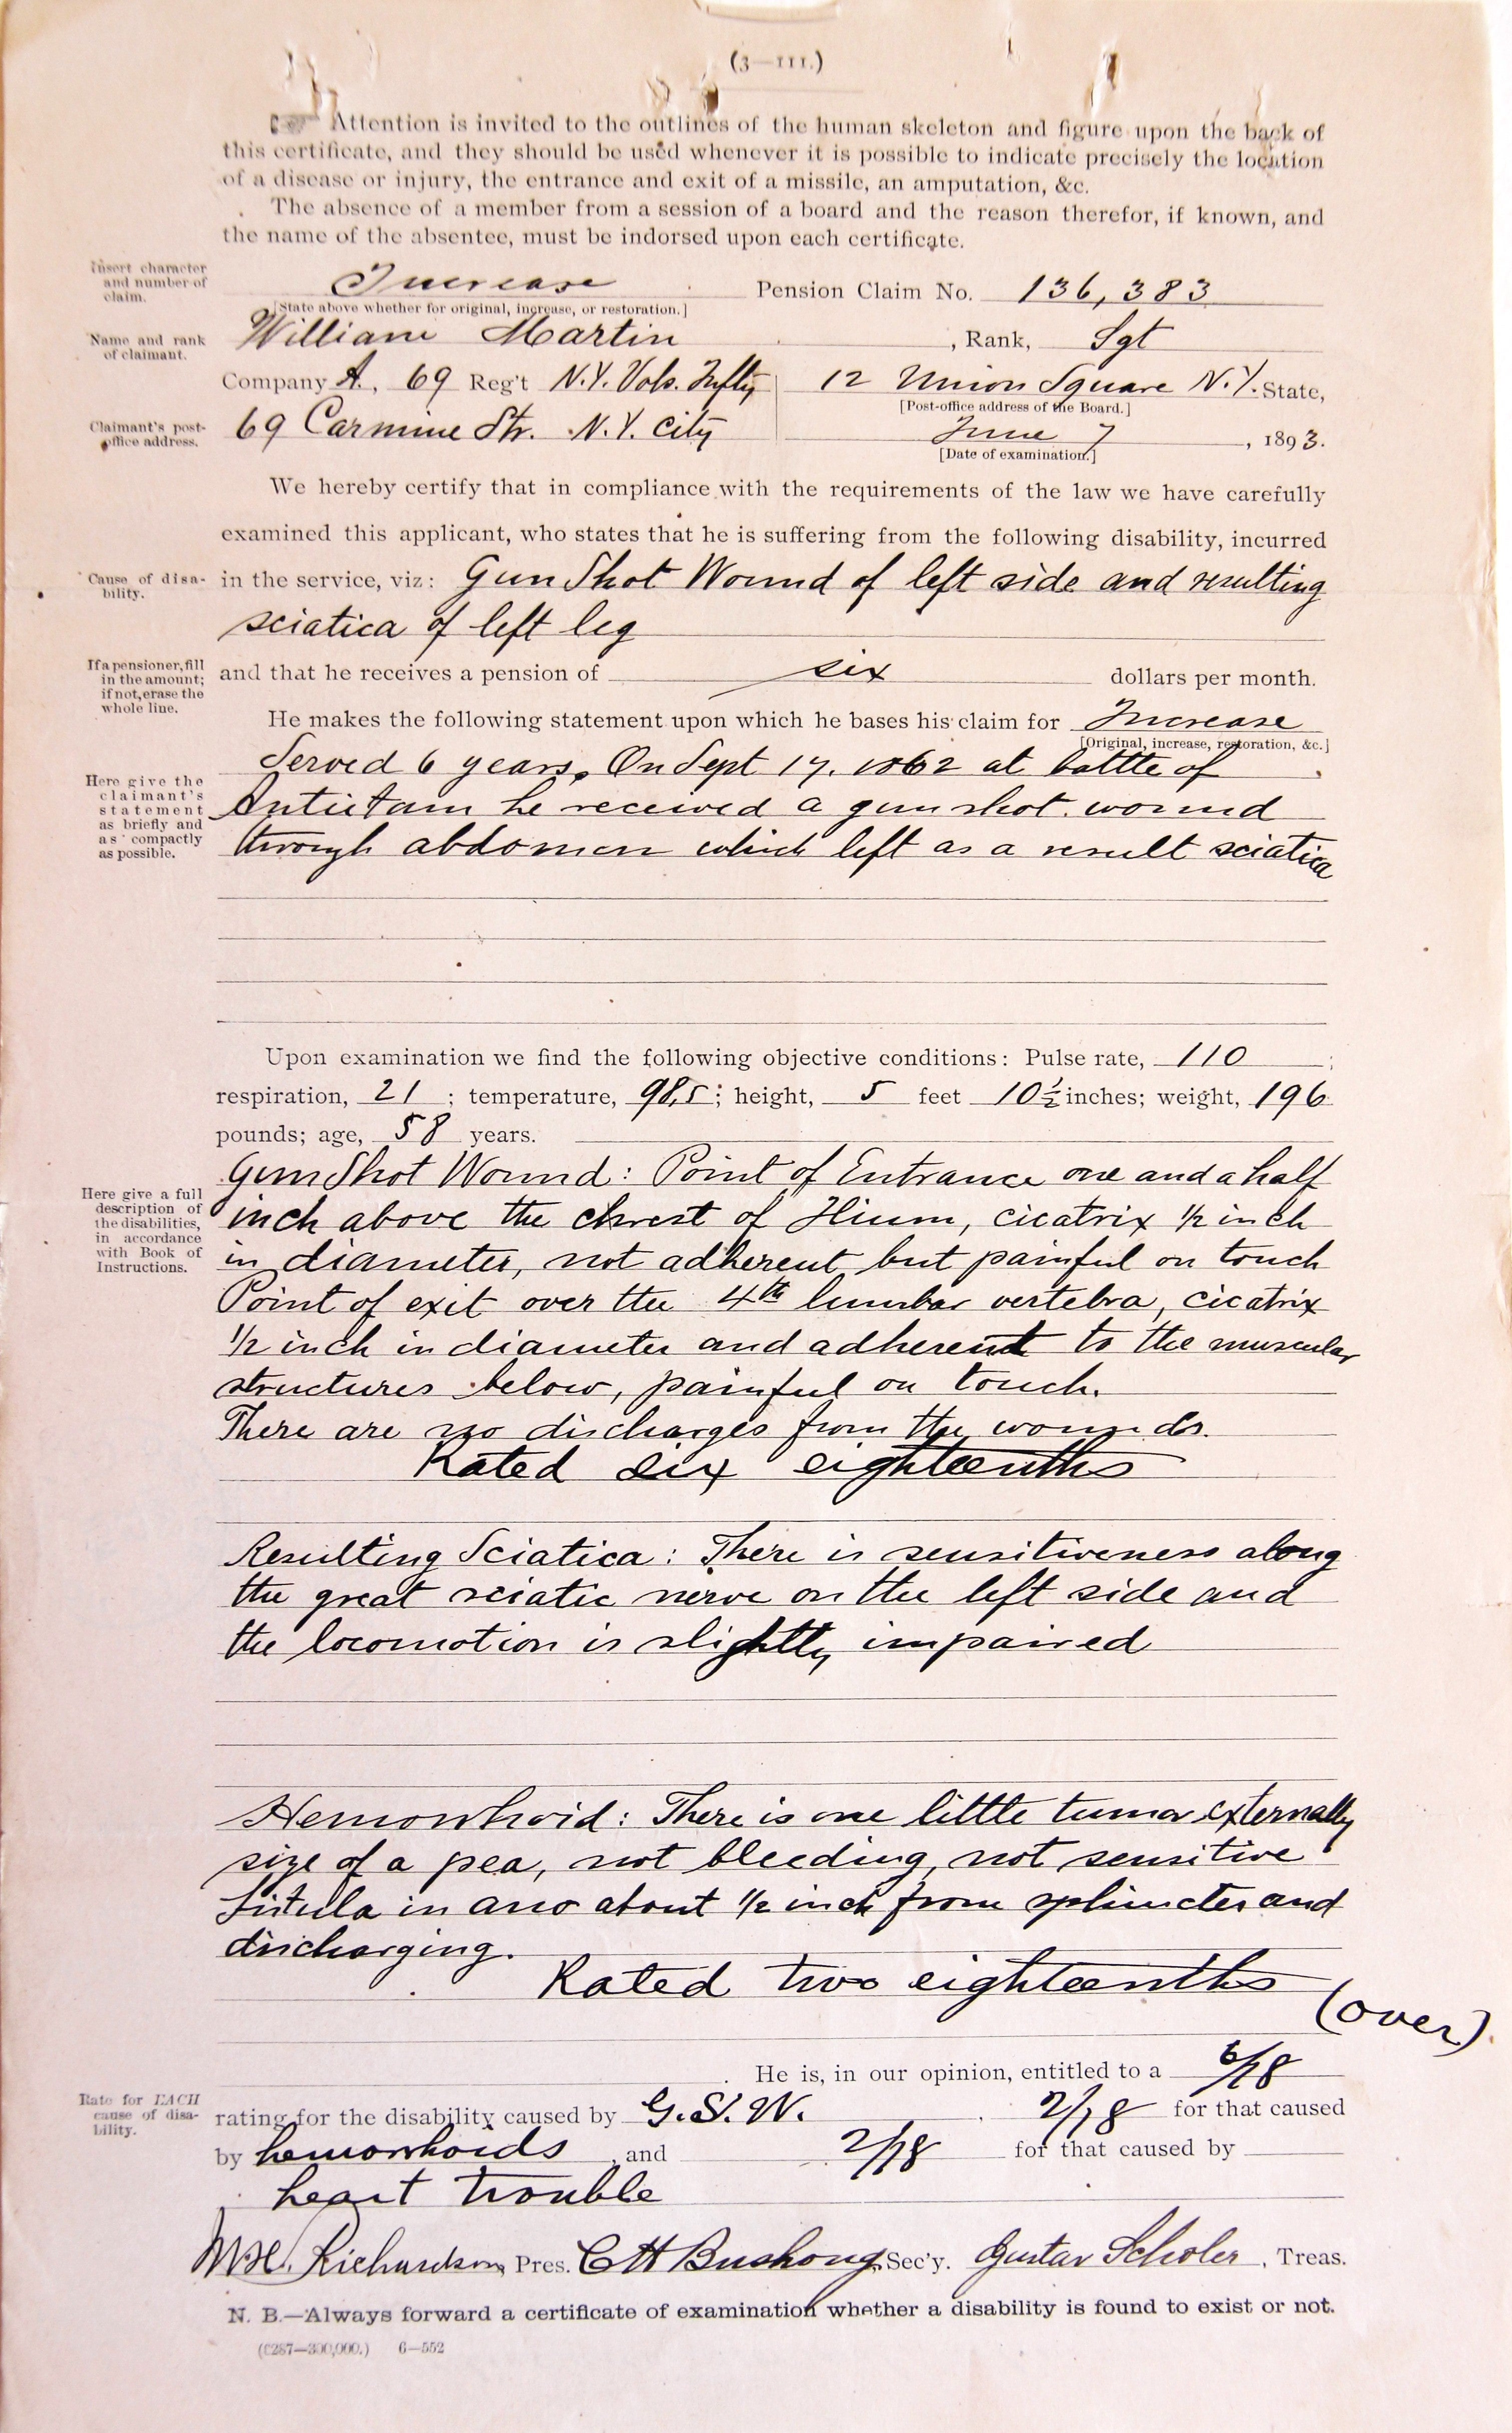 (3—111.)
☞ Attention is invited to the outlines of the human skeleton and figure upon the back of
this certificate, and they should be used whenever it is possible to indicate precisely the location
of a disease or injury, the entrance and exit of a missile, an amputation, &c.
The absence of a member from a session of a board and the reason therefor, if known, and
the name of the absentee, must be indorsed upon each certificate.
Insert character and number of claim.
Increase Pension Claim No. 136,383
[State above whether for original, increase, or restoration.]
Name and rank of claimant.
William Martin, Rank, Sgt
Company A., 69 Reg't N.Y. Vols. Infty 12 Union Square N.Y. State,
[Post-office address of the Board.]
Claimant's post-office address.
69 Carmine Str. N.Y. City June 7, 1893.
[Date of examination.]
We hereby certify that in compliance with the requirements of the law we have carefully
examined this applicant, who states that he is suffering from the following disability, incurred
Cause of disability.
in the service, viz: Gun Shot Wound of left side and resulting
sciatica of left leg
If a pensioner, fill in the amount; if not, erase the whole line.
and that he receives a pension of six dollars per month.
He makes the following statement upon which he bases his claim for Increase
[Original, increase, restoration, &c.]
Here give the claimant's statement as briefly and as compactly as possible.
Served 6 years. On Sept 17. 1862 at battle of
Antietam he received a gun shot wound
through abdomen which left as a result sciatica
Upon examination we find the following objective conditions: Pulse rate, 110;
respiration, 21; temperature, 98,5; height, 5 feet 10½ inches; weight, 196
pounds; age, 58 years.
Here give a full description of the disabilities, in accordance with Book of Instructions.
Gun Shot Wound: Point of Entrance one and a half
inch above the chrest of Ilium, cicatrix 1/2 inch
in diameter, not adherent but painful on touch
Point of exit over the 4th lumbar vertebra, cicatrix
1/2 inch in diameter and adherent to the muscular
structures below, painful on touch.
There are no discharges from the wounds.
Rated six eighteenths
Resulting Sciatica: There is sensitiveness along
the great sciatic nerve on the left side and
the locomotion is slightly impaired
Hemorrhoid: There is one little tumor externally
size of a pea, not bleeding, not sensitive
Fistula in ano about 1/2 inch from sphincter and
discharging.
Rated two eighteenths
(over)
He is, in our opinion, entitled to a 6/18
Rate for EACH cause of disability.
rating for the disability caused by G.S.W. 2/18 for that caused
by hemorrhoids, and 2/18 for that caused by
heart trouble
M.H. Richardson, Pres. CH Bushong, Sec'y. Gustav Scholer, Treas.
N. B.—Always forward a certificate of examination whether a disability is found to exist or not.
(C287—300,000.) 6—552